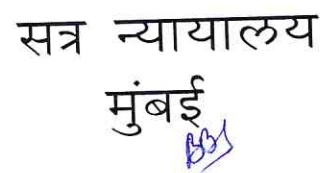 सत्र न्यायालय
मुंबई